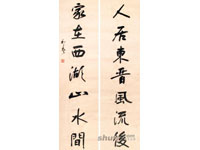 人居東晉風流後
家在西湖山水間